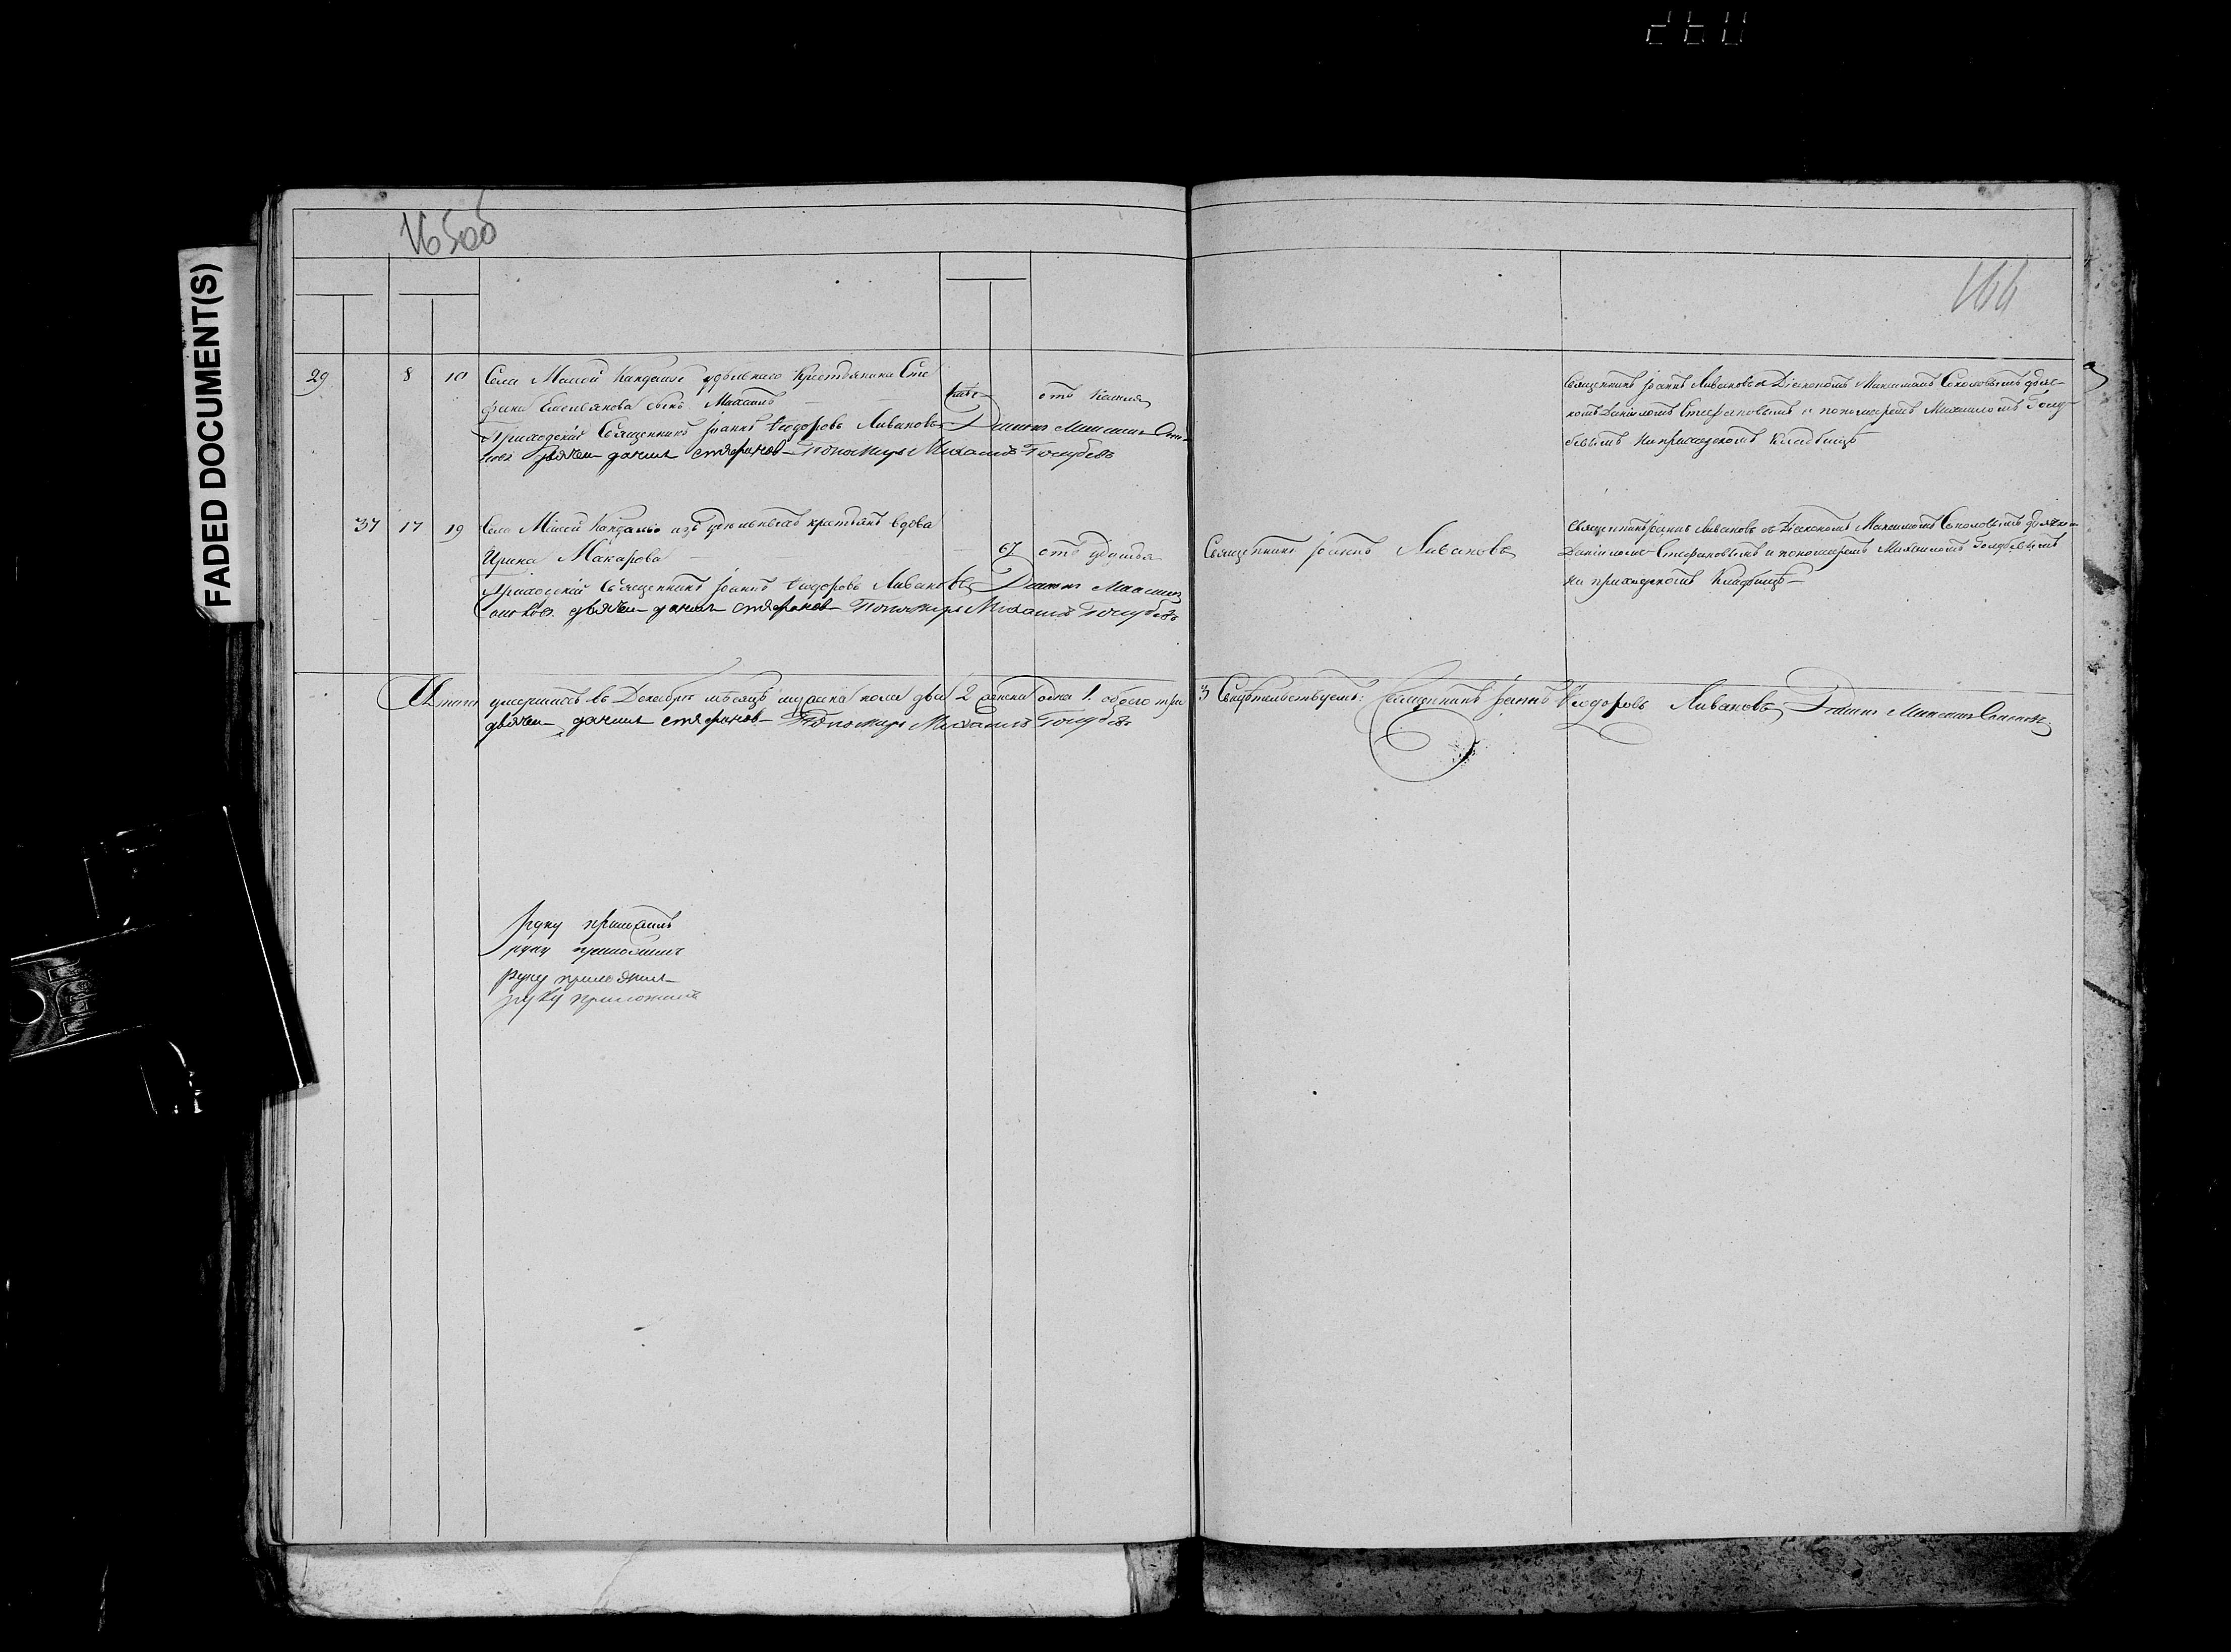 FADED DOCUMENT(S)
16500
164
29 8 10 Села Малой Кандалы удѣльнаго крестьянина Сте
фана Емельянова сынъ Михаилъ отъ кашля
Приходскій Священникъ Іоаннъ Ѳеодоровъ Ливановъ Діаконъ Максимъ Соко
ловъ дьячек данил стефанов Пономарь Михаилъ Голубевъ
Священникъ Іоаннъ Ливановъ съ Діакономъ Максимомъ Соколовымъ дьяч-
комъ Даніиломъ Стефановымъ и пономаремъ Михаиломъ Голу-
бевымъ на приходскомъ кладбищѣ
37 17 19 Села Малой Кандалы изъ удѣльныхъ крестьянъ вдова
Ирина Макарова 67 отъ удушья
Приходскій Священникъ Іоаннъ Ѳеодоровъ Ливановъ Діаконъ Максимъ
Соколовъ дьячек данил стефанов Пономарь Михаилъ Голубевъ
Священникъ Іоаннъ Ливановъ
Священникъ Іоаннъ Ливановъ съ Діакономъ Максимомъ Соколовымъ дьячко
Даніиломъ Стефановымъ и пономаремъ Михаиломъ Голубевымъ
на приходскомъ кладбищѣ
Итого умершихъ въ Декабрѣ мѣсяцѣ мужска пола два 2 женска одна 1. обоего три 3 Свидѣтельствуемъ: Священникъ Іоаннъ Ѳеодоровъ Ливановъ Діаконъ Максимъ Соколовъ
дьячек данил стефанов Пономарь Михаилъ Голубевъ
руку приложилъ
руку приложилъ
руку приложил
руку приложилъ